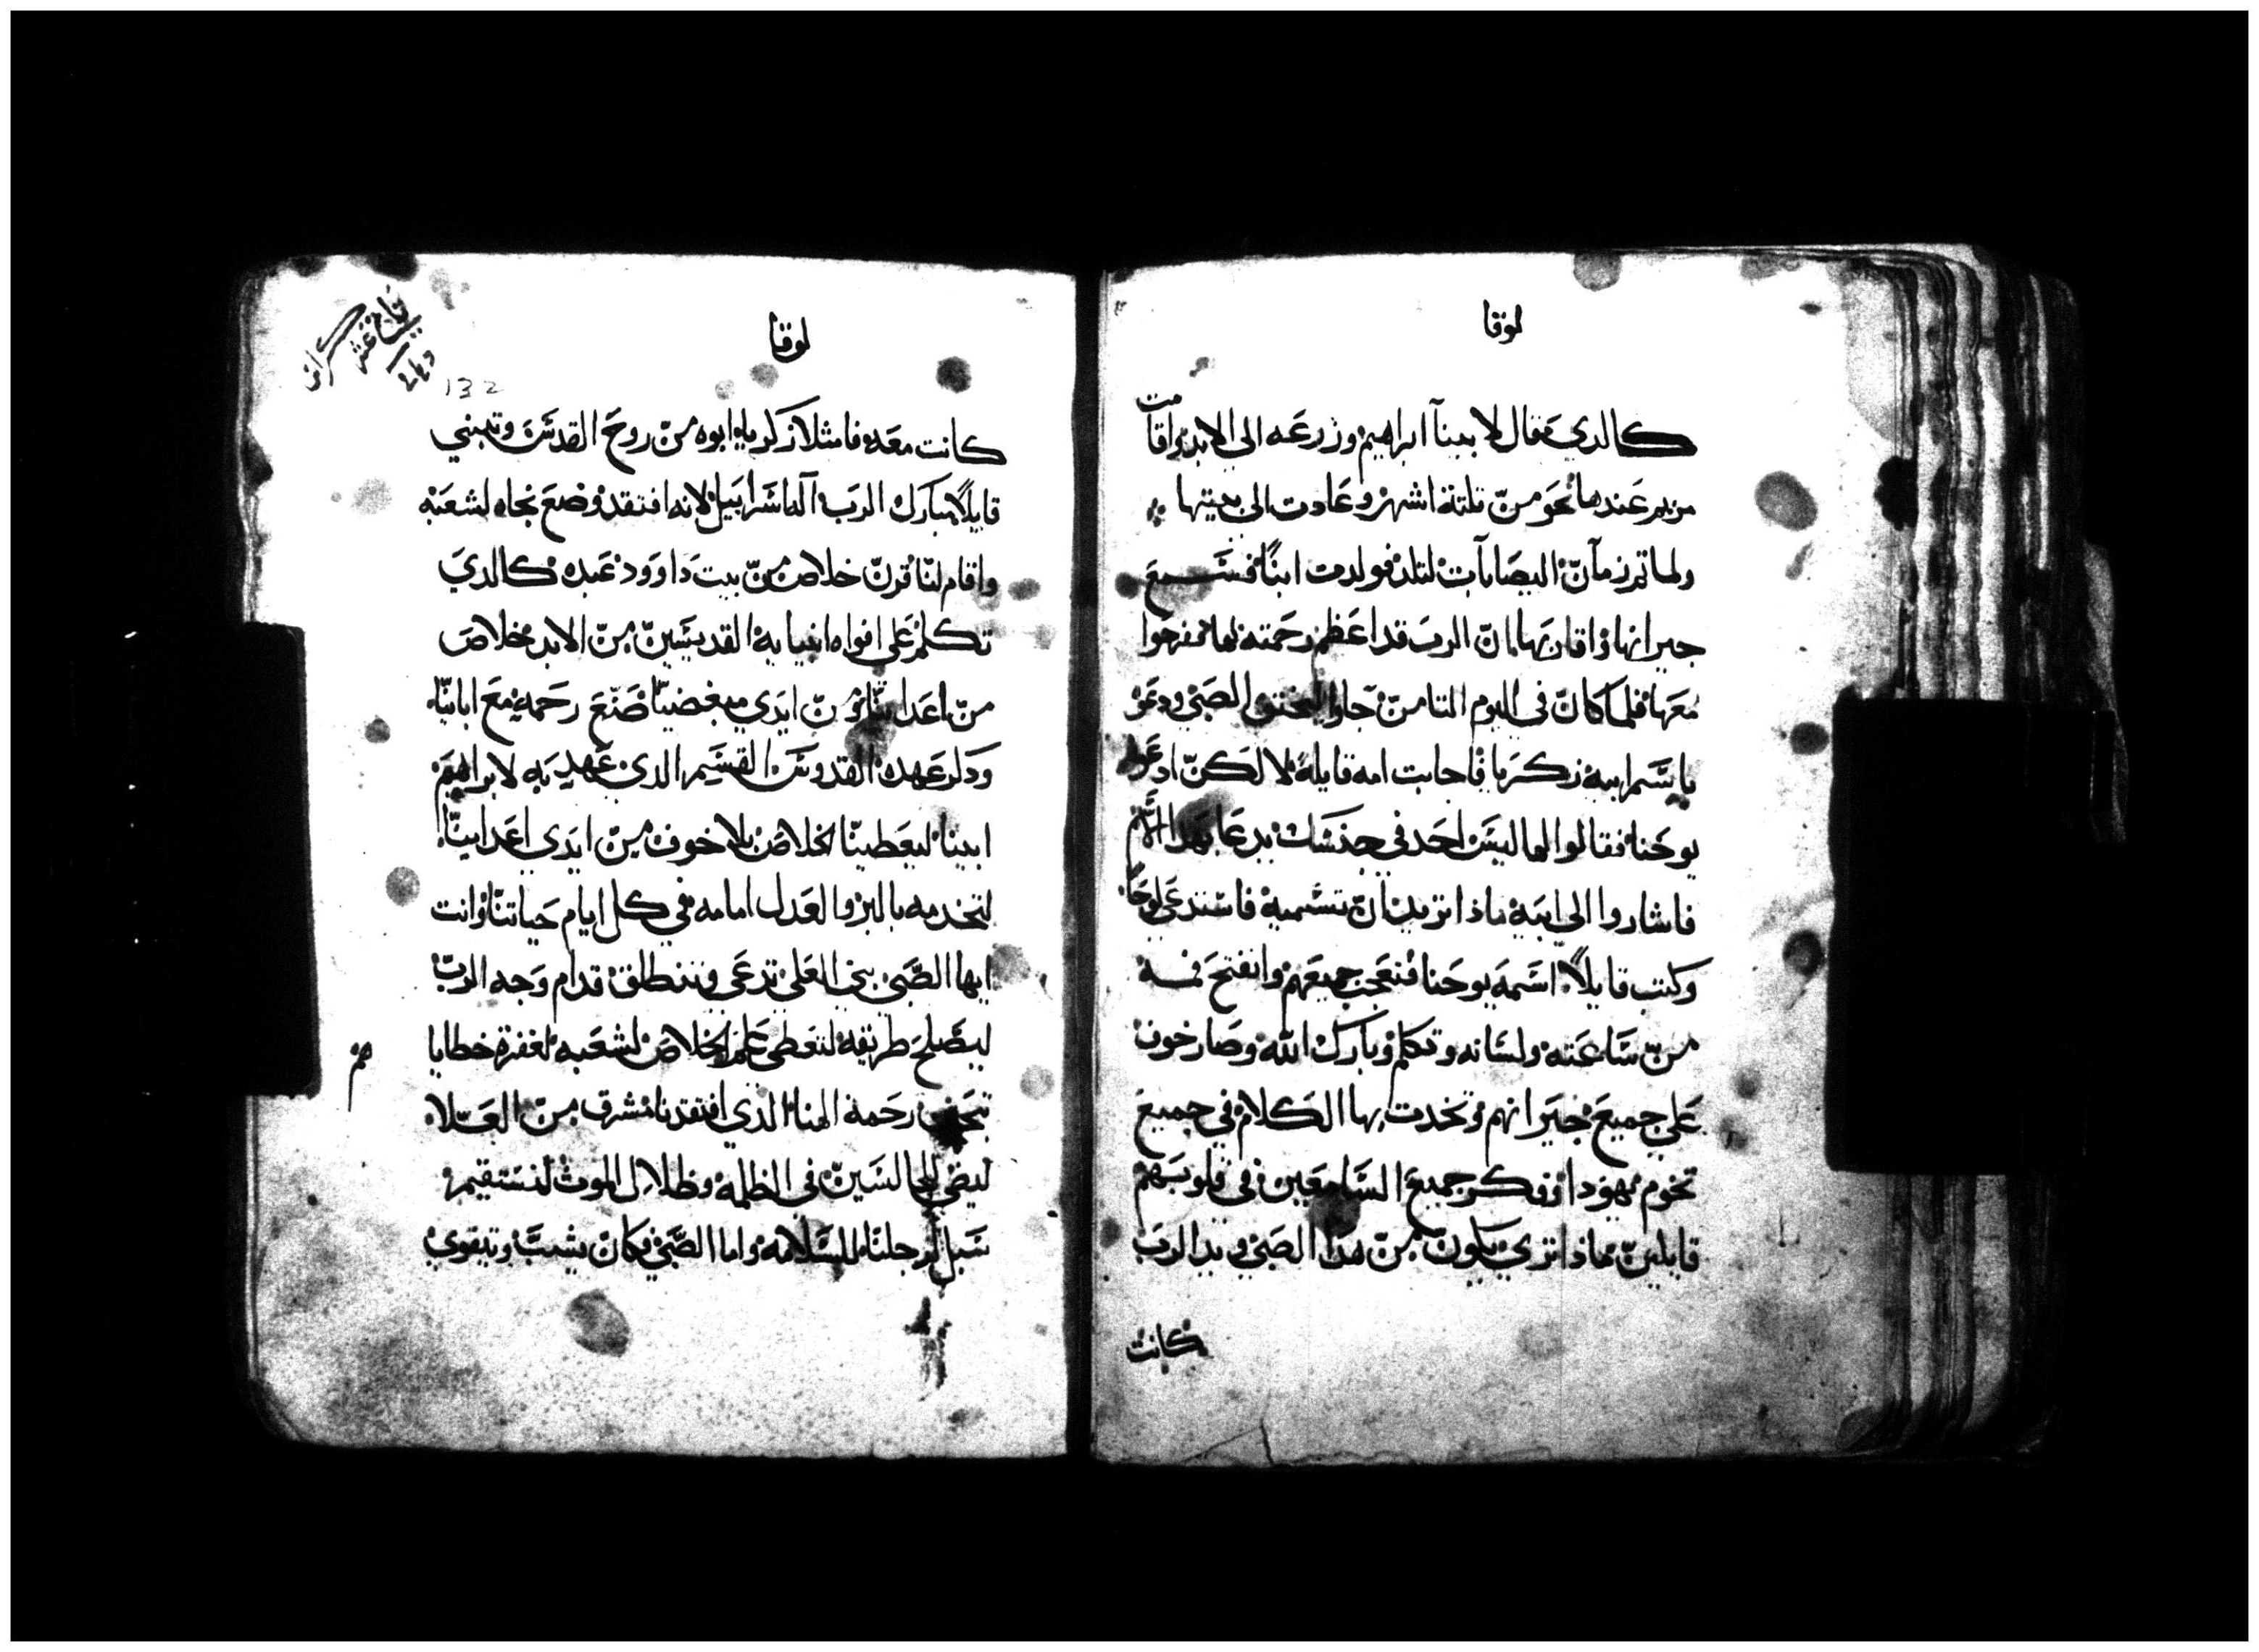 لوقا
كالدي قال لابينآ ابراهيم وزرعه الي الابد واقامت
مريم عندها نحو من تلتة اشهر وعادت الي بيتها
ولما تم زمآن اليصابات لتلد فولدت ابنًا فسمع
جيرانها واقاربها ان الرب قد اعظم رحمته لها ففرحوا
معها فلما كان في اليوم التامن جاوا ليختنوا الصبي ودعو
باسم ابيه زكريا فاجابت امه قايلة لا لكن ادعوا
يوحنا فقالوا لها ليس احد في جنسك يدعا بهدا الاسم
فاشاروا الي ابيه ماذا تريد ان تسميه فاستدعي لوحًا
وكتب قايلاً اسمه يوحنا فتعجب جميعهم وانفتح فمه
من ساعته ولسانه وتكلم وبارك الله وصار خوف
علي جميع جيرانهم وتحدت بها الكلام في جميع
تخوم يهودا وفكر جميع السامعين في قلوبهم
قايلين ماذا تري يكون من هدا الصبي ويد الرب
كانت
لوقا
132
كانت معه فامتلا زكريا ابوه من روح القدس وتنبي
قايلاً مبارك الرب آله اسراييل لانه افتقد وضع نجاه لشعبه
واقام لنا قرن خلاص من بيت داوود عبده كالدي
تكلم علي افواه انبيايه القديسين من الابد خلاص
من اعداينا ومن ايدي مبغضينا صنع رحمة مع ابائنا
ودكر عهده القدوس القسم الدي عهد به لابراهيم
ابينا ليعطينا الخلاص بلا خوف من ايدي اعداينا
لنخدمه بالبر والعدل امامه في كل ايام حياتنا وانت
ايها الصبي نبي العلي تدعي وتنطلق قدام وجه الرب
ليصلح طريقه لتعطي علم الخلاص لشعبه لغفرة خطايا
هم
تحنن رحمة الهنا الدي افتقدنا مشرق من العلاه
ليضي للجالسين في الظلمة وظلال الموت لتستقيم
سبل ارجلنا للسلامه واما الصبي فكان يشب وتيقوي